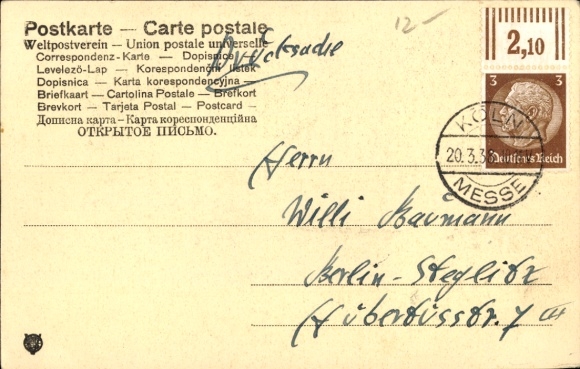 Postkarte — Carte postale
Weltpostverein — Union postale universelle
Correspondenz-Karte — Dopisnice
Levelező-Lap — Korespondenční lístek
Dopisnica — Karta korespondencyjna —
Briefkaart — Cartolina Postale — Brefkort
Brevkort — Tarjeta Postal — Postcard —
Дописна карта — Карта кореспонденційна
ОТКРЫТОЕ ПИСЬМО.
Drucksache
12 -
2,10
3 3
Deutsches Reich
KÖLN
20.3.38
MESSE
Herrn
Willi Baumann
Berlin-Steglitz
Hubertusstr. 7